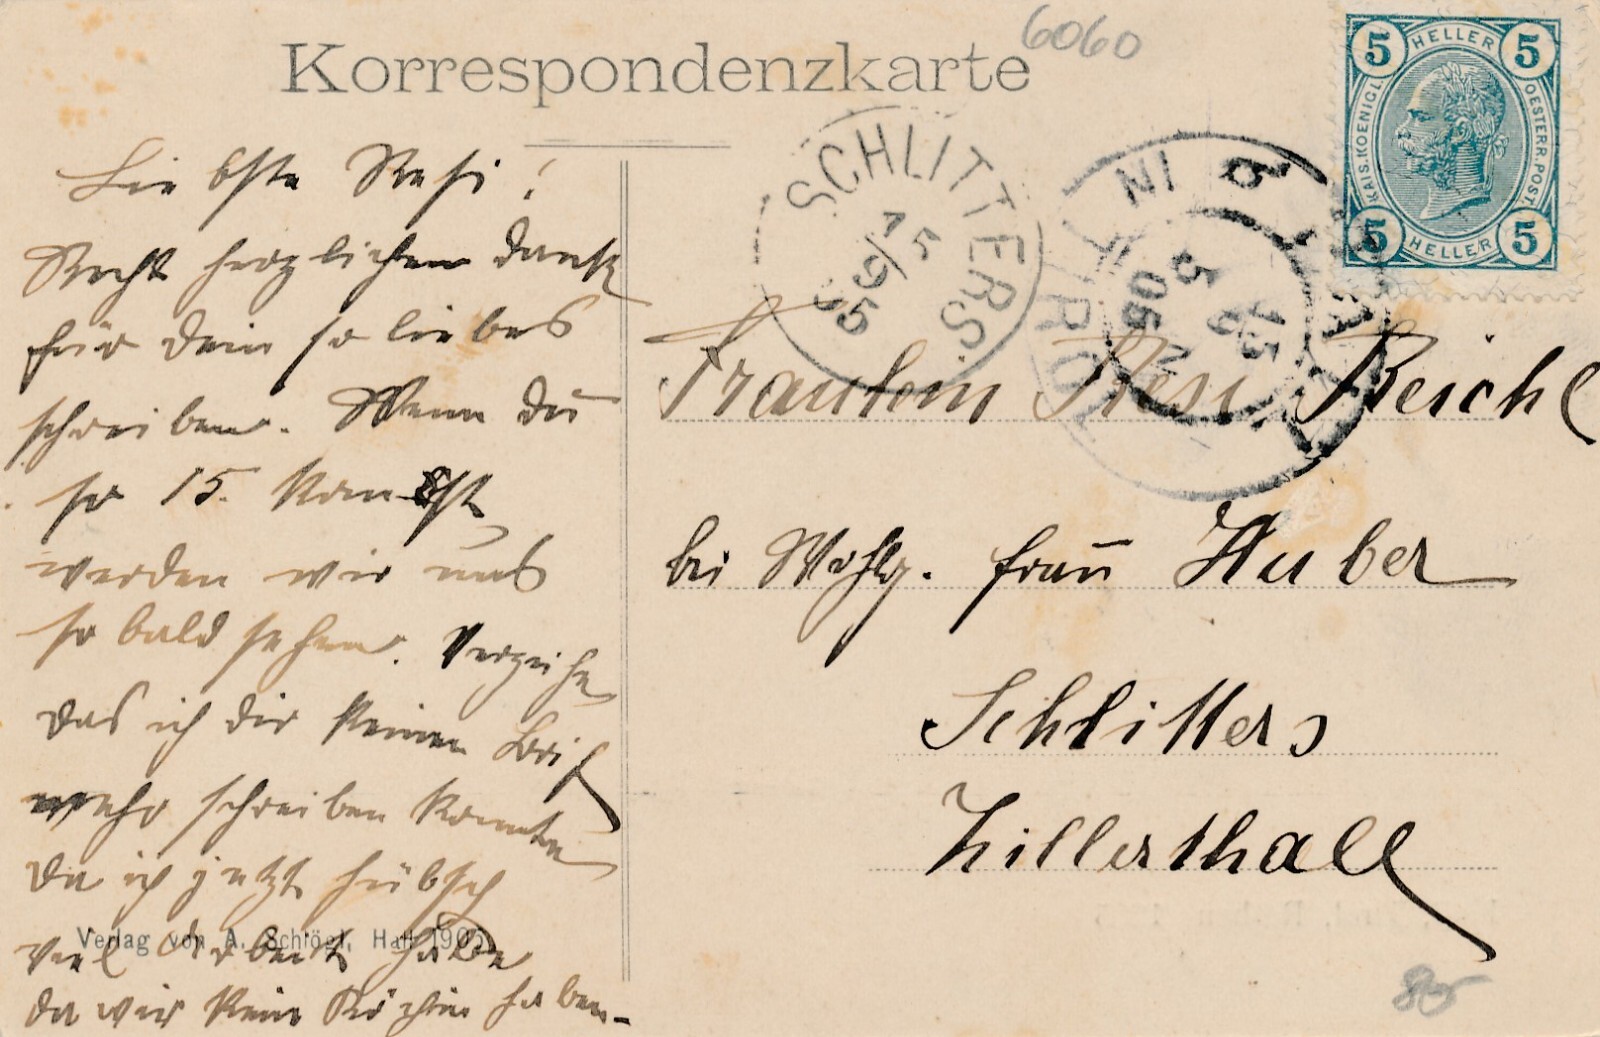 Korrespondenzkarte
6060
5 HELLER 5
KAIS. KOENIGL. OESTERR. POST.
5 HELLER 5
SCHLITTERS
15
9
05
HALL IN TIROL
15 9 05
Liebste Resi!
Recht herzlichen Dank
für Dein so liebes
schreiben. Wenn Du
so 15. komst
werden wir uns
so bald sehen. Verzeihe
das ich dir keinen Brief
mehr schreiben konnte
Da ich jetzt hübsch
viel Arbeit habe
da wir kein Köchin haben-
Verlag von A. Schlögl, Hall 1905
Fräulein Resi Reichl
bei Wohlg. Frau Huber
Schlitters
Zillerthall